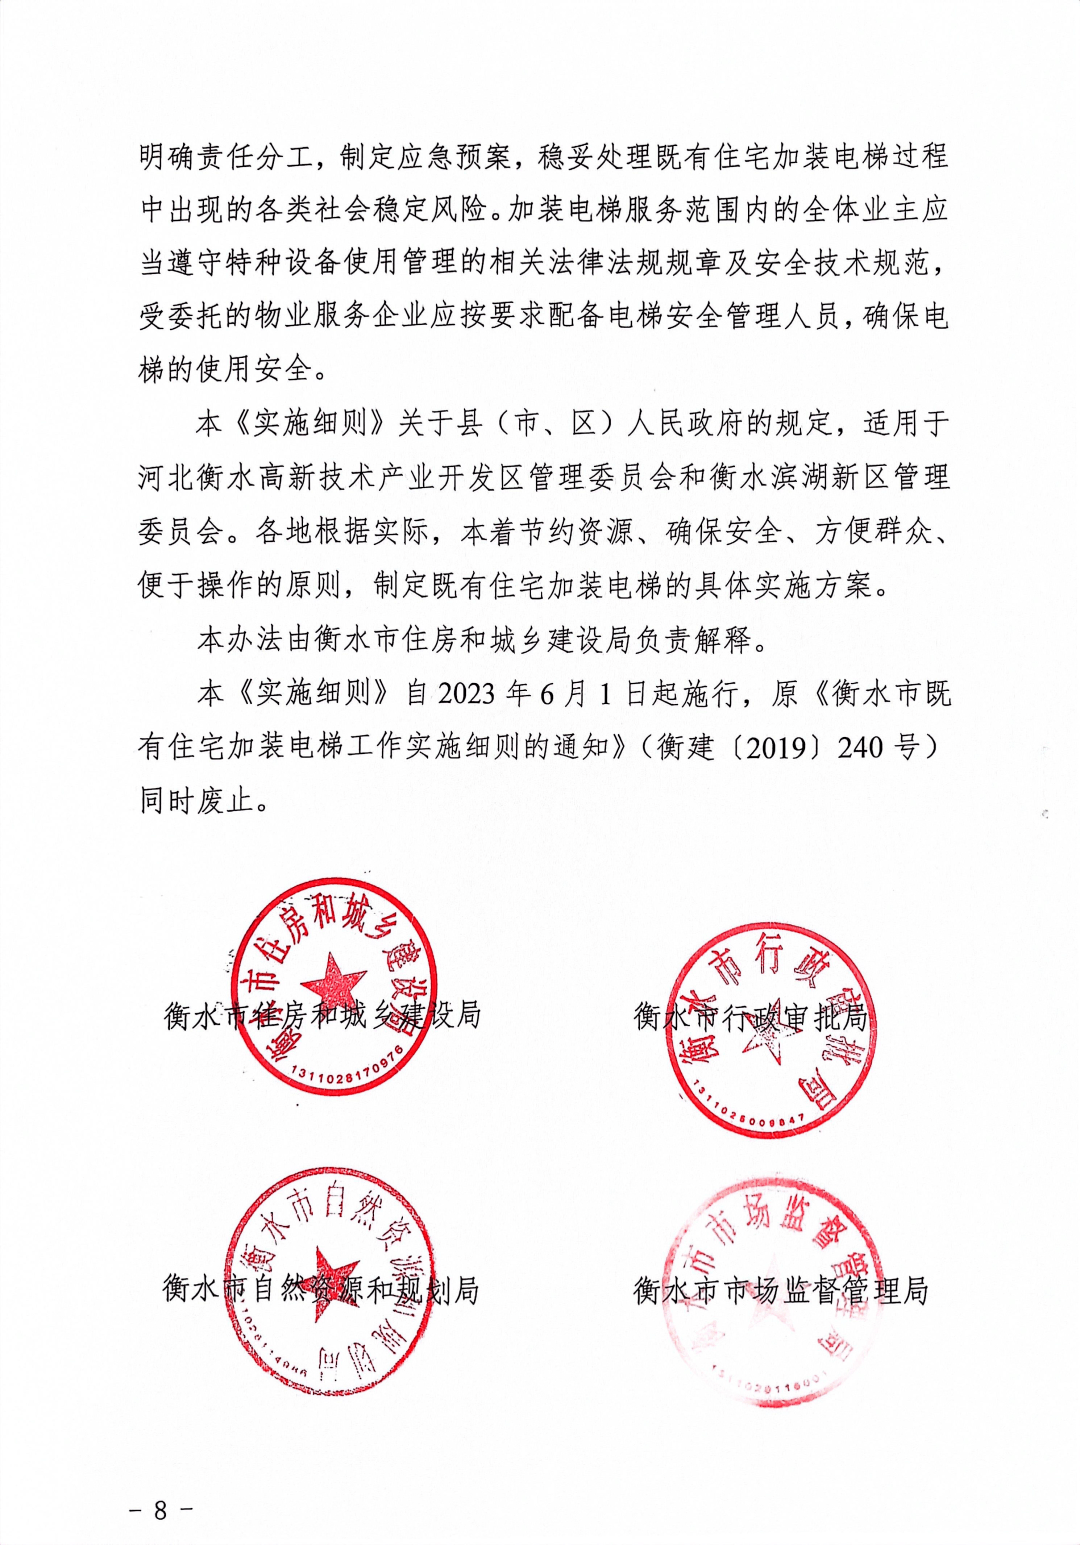 明确责任分工，制定应急预案，稳妥处理既有住宅加装电梯过程
中出现的各类社会稳定风险。加装电梯服务范围内的全体业主应
当遵守特种设备使用管理的相关法律法规规章及安全技术规范，
受委托的物业服务企业应按要求配备电梯安全管理人员，确保电
梯的使用安全。
本《实施细则》关于县（市、区）人民政府的规定，适用于
河北衡水高新技术产业开发区管理委员会和衡水滨湖新区管理
委员会。各地根据实际，本着节约资源、确保安全、方便群众、
便于操作的原则，制定既有住宅加装电梯的具体实施方案。
本办法由衡水市住房和城乡建设局负责解释。
本《实施细则》自 2023 年 6 月 1 日起施行，原《衡水市既
有住宅加装电梯工作实施细则的通知》（衡建〔2019〕240 号）
同时废止。
衡水市住房和城乡建设局
衡水市住房和城乡建设局
1311028170976
衡水市行政审批局
衡水市行政审批局
衡水市自然资源和规划局
衡水市自然资源和规划局
衡水市市场监督管理局
衡水市市场监督管理局
－ 8 －